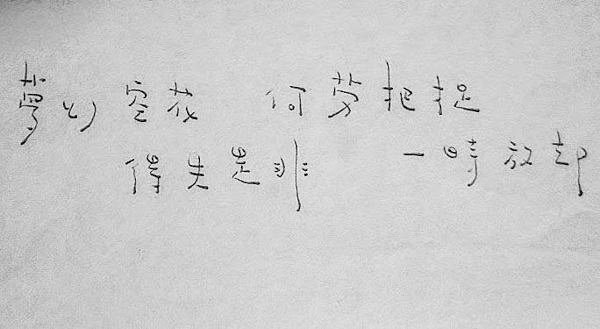 夢幻空花 何勞把捉
得失是非 一時放却